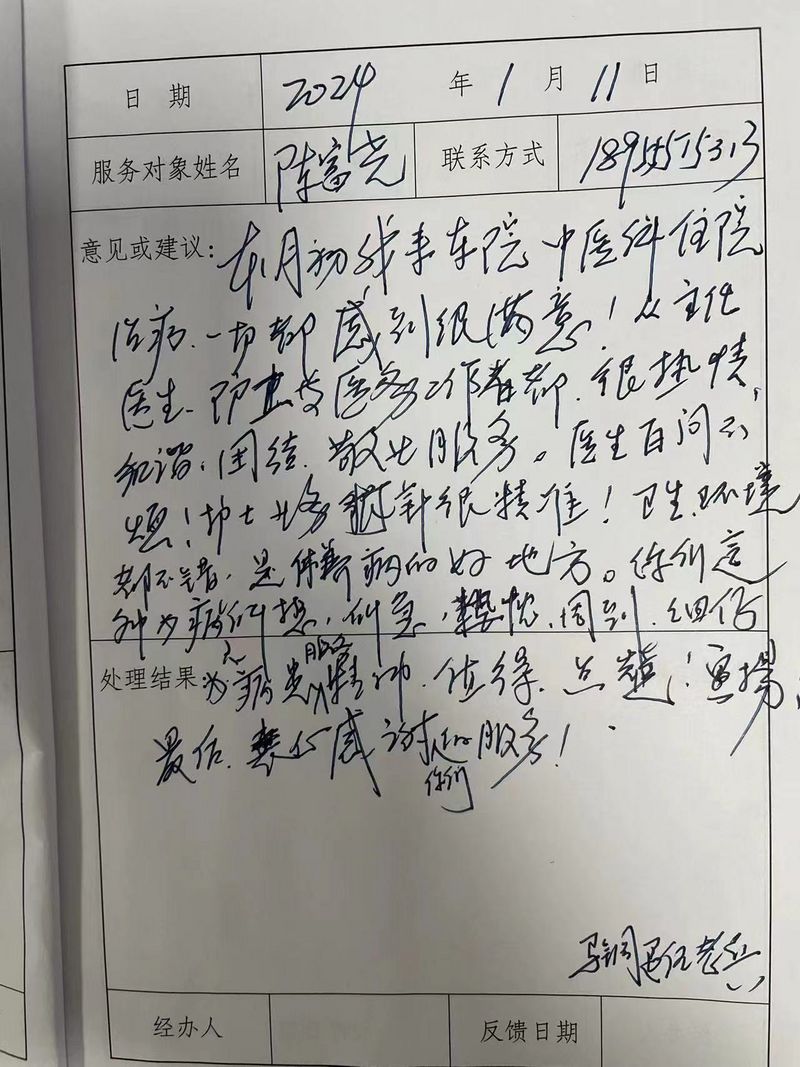 日 期 2024 年 1 月 11 日
服务对象姓名 陈富尧 联系方式
意见或建议: 本月初我来本院中医科住院
治病、一切都感到很满意！从主任
医生、护士与医务工作者都、很热情、
和谐、团结、敬业服务。医生百问不
烦！护士业务 打针很精准！卫生、环境
都不错、是休养 病的好地方。你们这
种为病们想、们急、热忱、周到、细仔
处理结果: 为病患服务精神、值得、点赞！宣扬
最后、衷心感谢 你们的服务！
退伍老兵
经办人 反馈日期